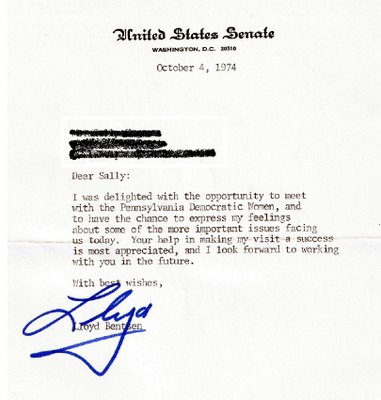 United States Senate
WASHINGTON, D.C. 20510
October 4, 1974
Dear Sally:
I was delighted with the opportunity to meet
with the Pennsylvania Democratic Women, and
to have the chance to express my feelings
about some of the more important issues facing
us today. Your help in making my visit a success
is most appreciated, and I look forward to working
with you in the future.
With best wishes,
Lloyd
Lloyd Bentsen